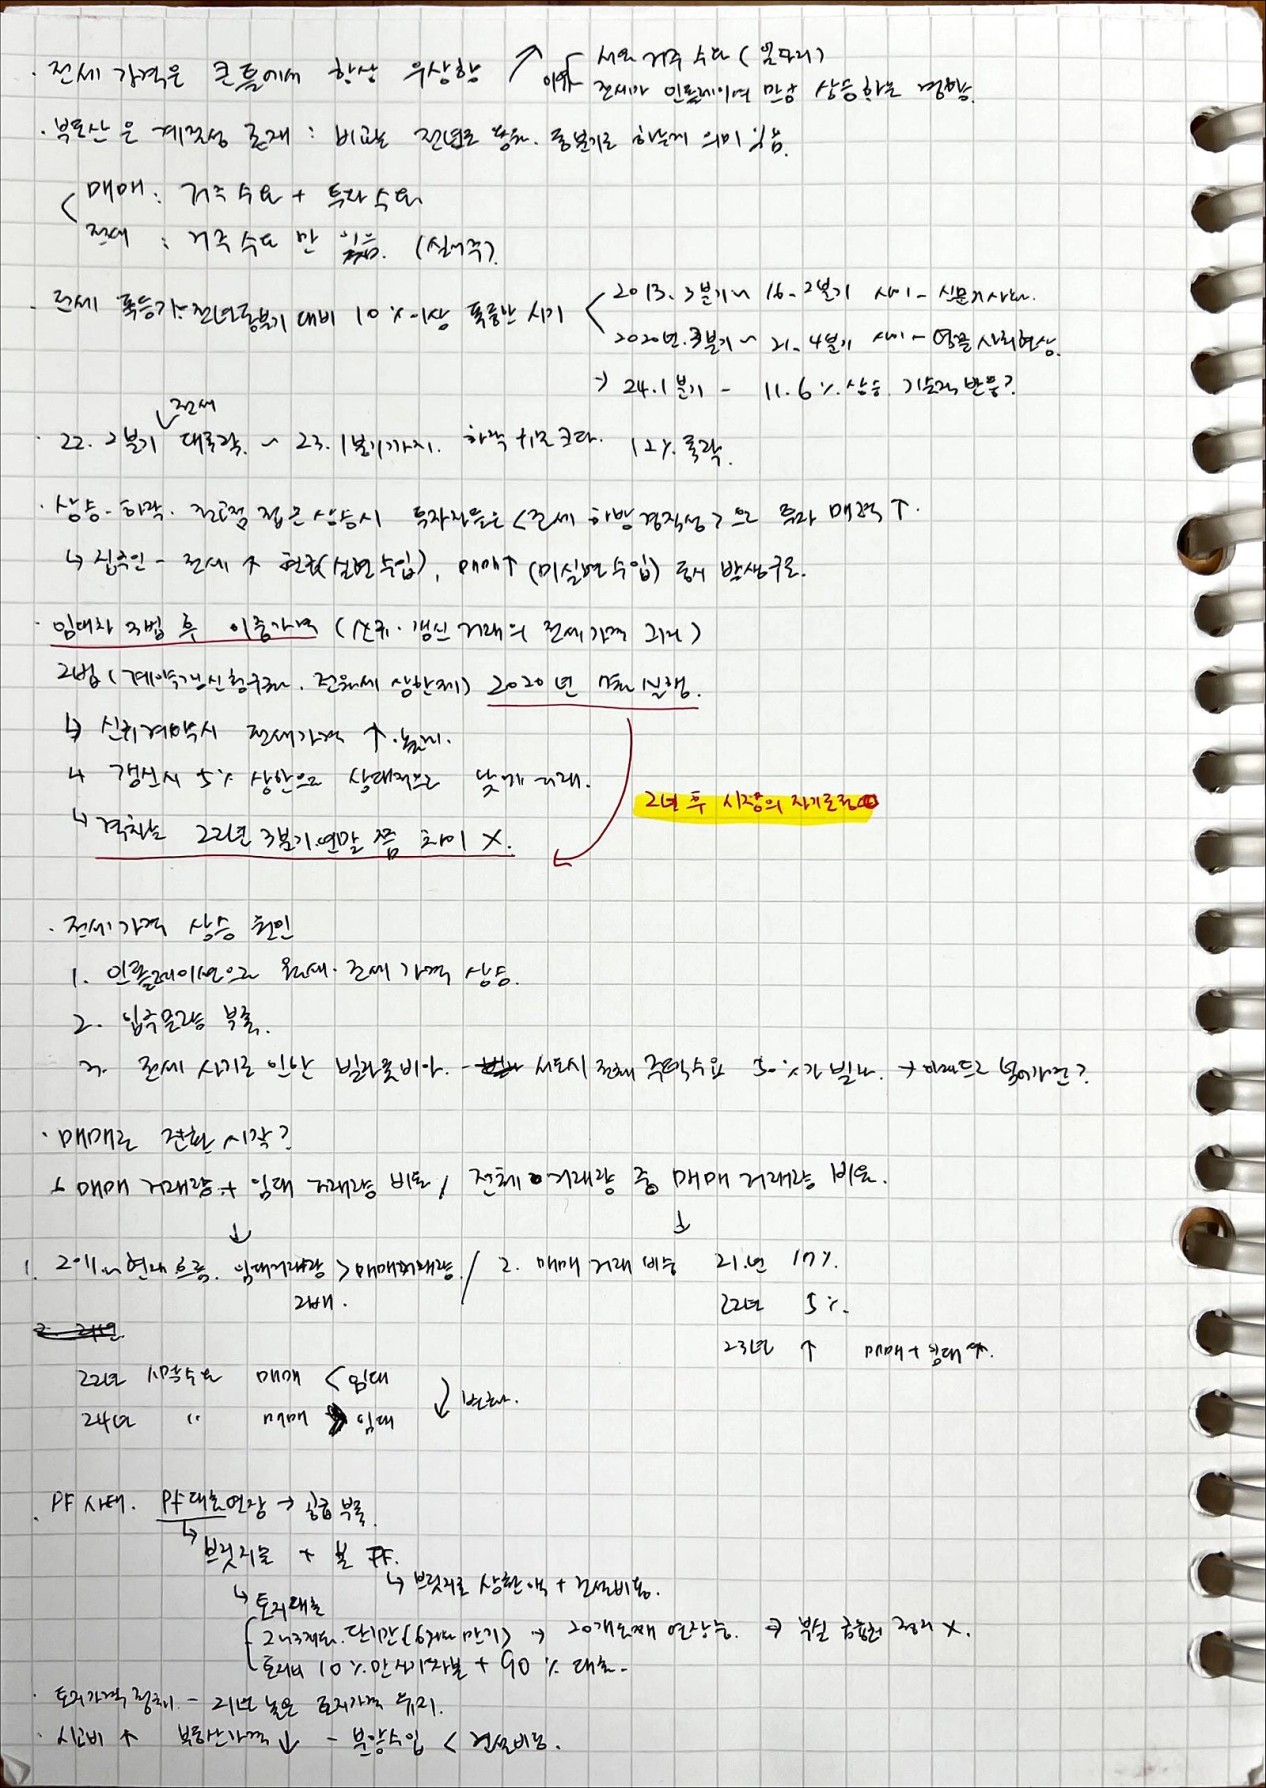 · 전세 가격은 큰 틀에서 항상 우상향 ↗ 이유 서울 거주 수요 (일자리)
전세가 인플레이션 만큼 상승하는 경향.
· 부동산은 계절성 존재 : 비교는 전년도 동월. 동분기로 하는게 의미 있음.
매매 : 거주 수요 + 투자 수요
전세 : 거주 수요 만 있음. (실거주)
· 전세 폭등기 - 전년동분기 대비 10%이상 폭등한 시기
2013. 3분기 ~ 16. 2분기 사이 -
2020년. 3분기 ~ 21. 4분기 사이 - 영끌 사회현상.
→ 24.1분기 - 11.6% 상승. 기술적 반등?
전세
· 22. 2분기 대폭락. ~ 23. 1분기까지. 하락 크다. 12% 폭락.
· 상승 - 하락. 전고점 접근 상승시 투자자들은 <전세 하방경직성>으로 투자 매력 ↑.
↳ 집주인 - 전세 ↑ 현금(실현수입), 매매↑ (미실현 수입) 동시 발생구조.
· 임대차 3법 후 이중가격 (신규·갱신 거래의 전세가격 괴리)
2법 (계약갱신청구권. 전월세 상한제) 2020년 실행.
↳ 신규계약시 전세가격 ↑.
↳ 갱신시 5% 상한으로 상대적으로 낮게 거래.
2년 후 시장의
↳ 격차는 22년 3분기.연말 쯤 차이 X.
· 전세가격 상승 원인
1. 인플레이션으로 월세·전세 가격 상승.
2. 입주물량 부족.
3. 전세 사기로 인한 빌라포비아. - 서울시 전체 주택수요 50%가 빌라. → 아파트로 넘어가면?
· 매매로 전환 시작?
매매 거래량 + 임대 거래량 비율 / 전체 거래량 중 매매 거래량 비율.
↓ ↓
1. 현재 흐름. 임대거래량 > 매매거래량 / 2. 매매 거래 비중 21년 17%
2배. 22년 5%.
23년 ↑ 매매 + 임대 ↑.
22년 매매 < 임대
변화.
24년 〃 매매 > 임대
· PF 사태. PF대출연장 → 공급 부족.
↳ 브릿지론 + 본 PF.
↳ 브릿지론 상환액 + 건설비용.
↳ 토지대출
단기간 (6개월 만기) → 20개월째 연장중. ⇒ 부실 정리 X.
토지비 10%만 자기자본 + 90% 대출.
· 토지가격 정체. - 21년 높은 토지가격 유지.
· 시공비 ↑ 부동산가격 ↓ - 분양수입 < 건설비용.